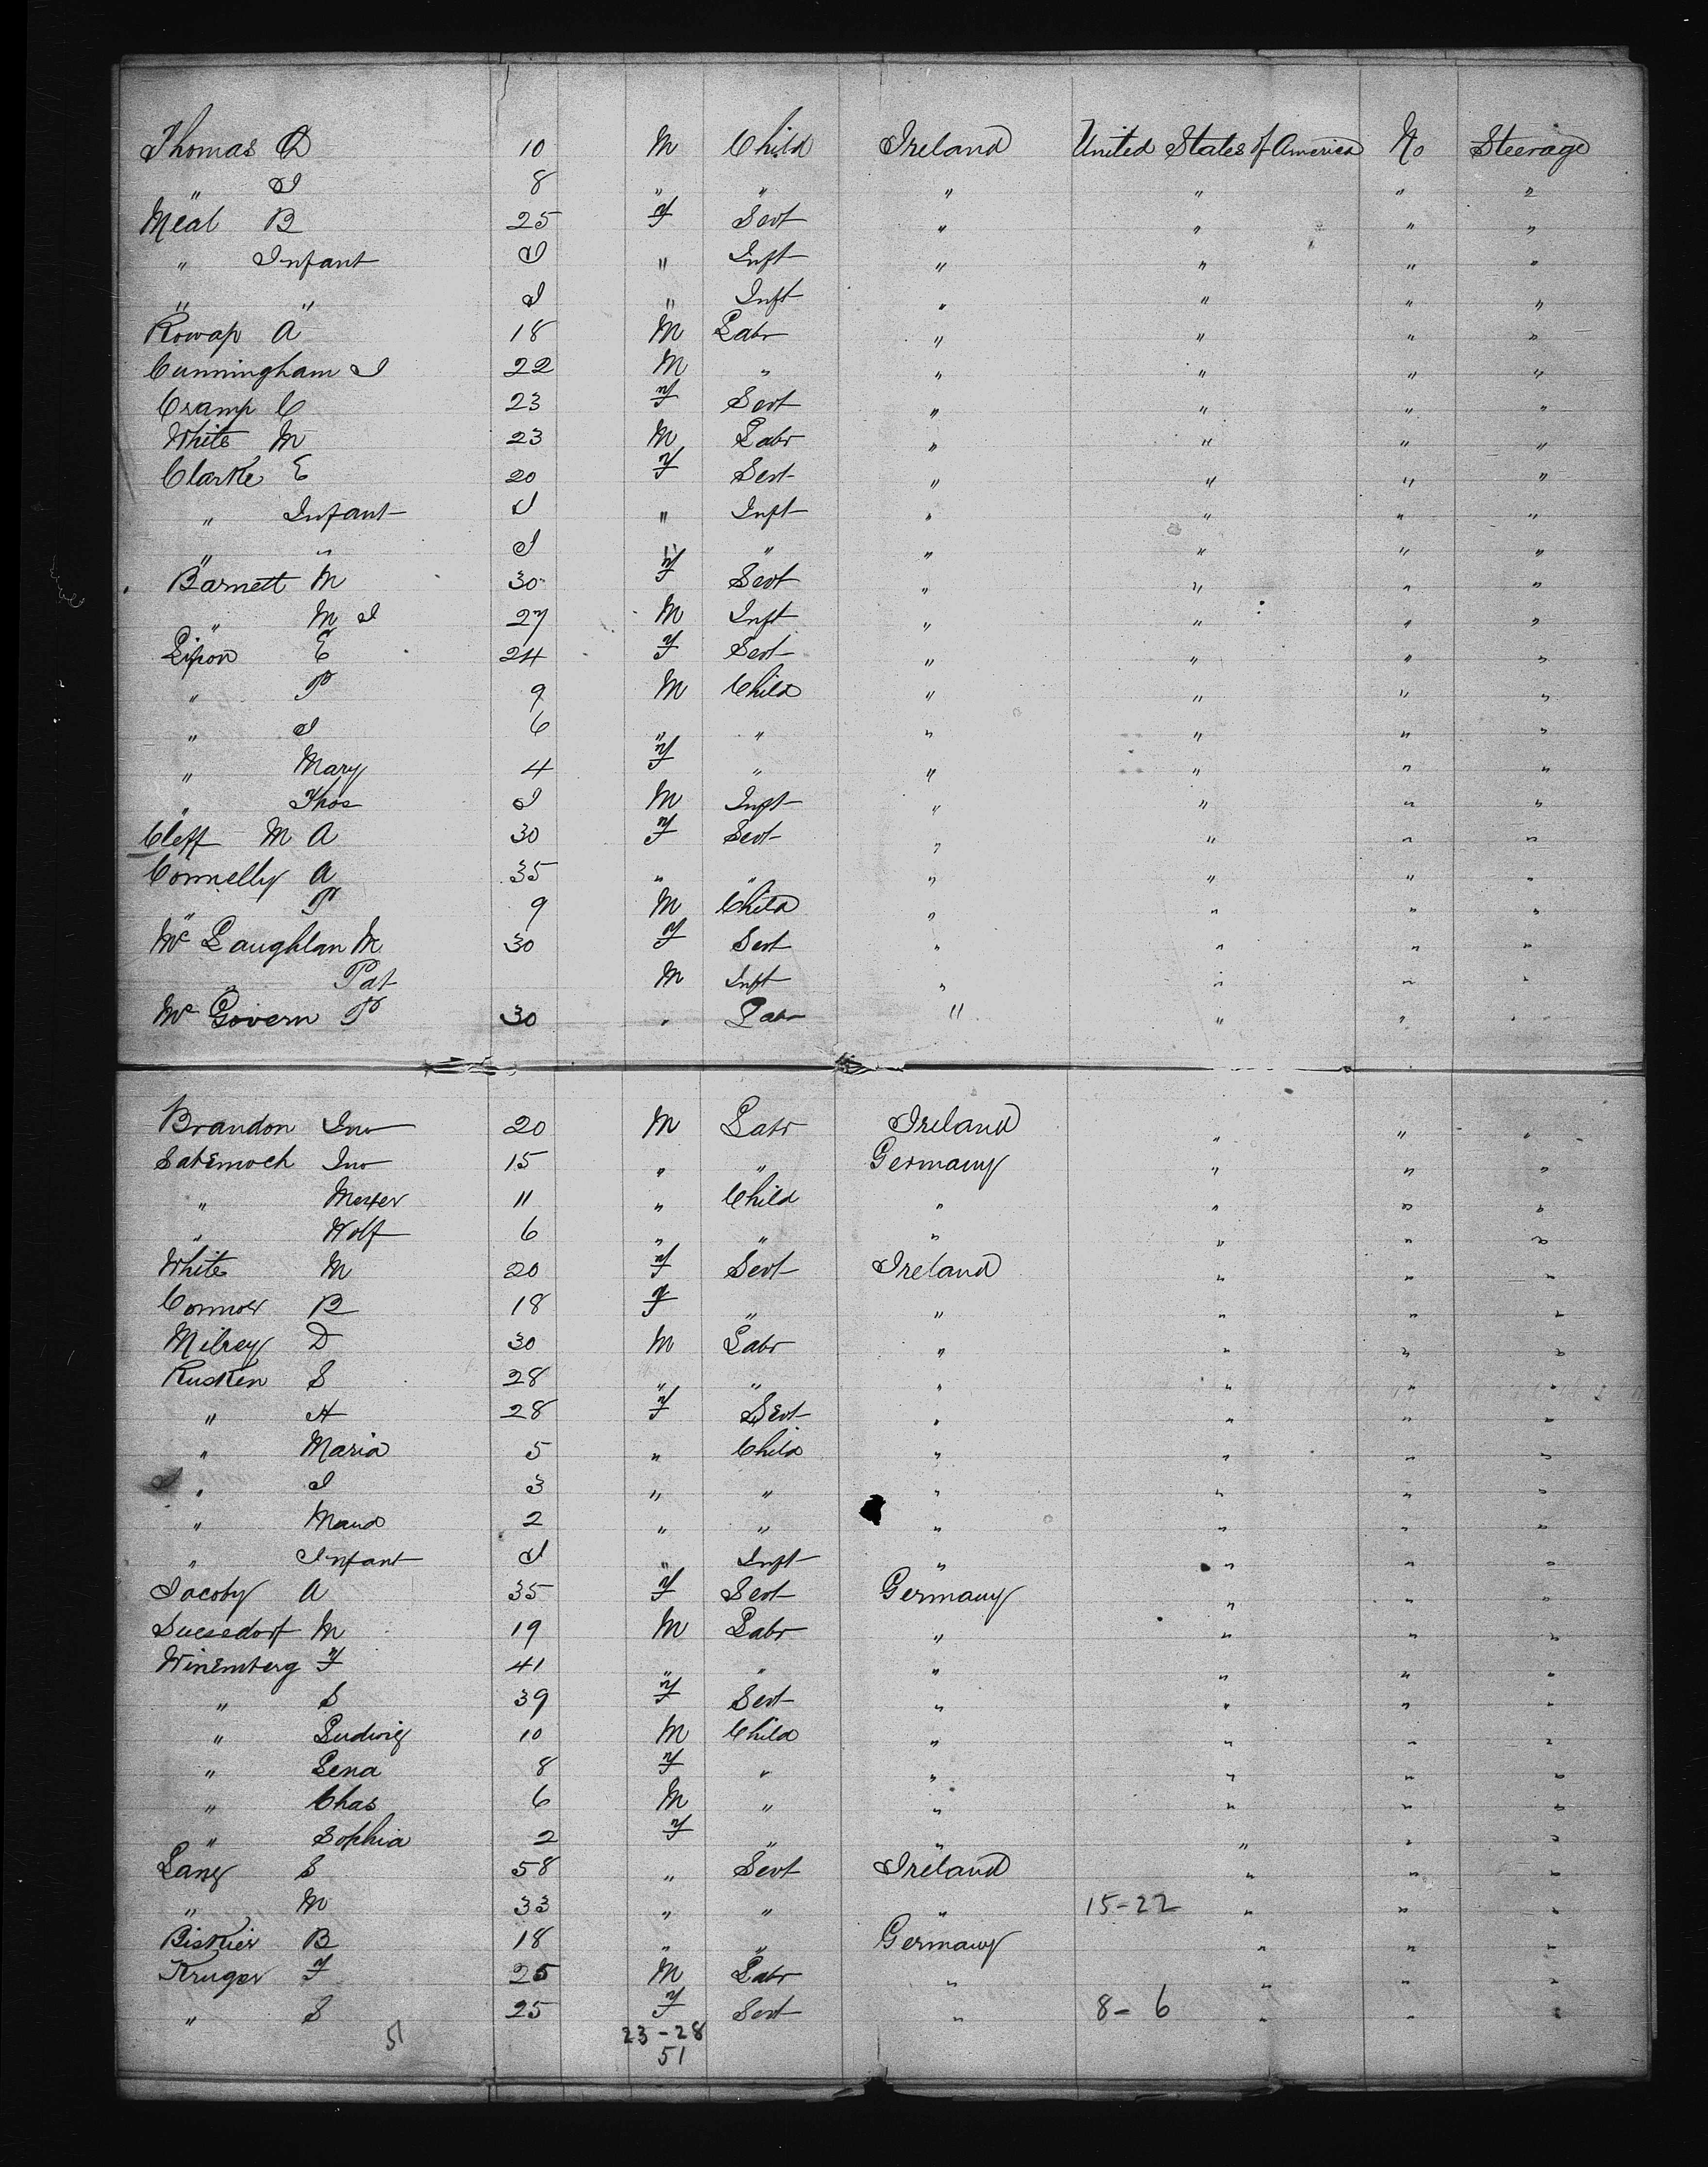 Thomas D 10 M Child Ireland United States of America No Steerage
" J 8 " " " " " "
Meal B 25 F Sevt " " " "
" Infant I " Inft " " " "
" " I " Inft " " " "
Rowap A 18 M Labr " " " "
Cunningham J 22 M " " " " "
Cramp C 23 F Sevt " " " "
White M 23 M Labr " " " "
Clarke E 20 F Sevt " " " "
" Infant I " Inft " " " "
" " I " " " " " "
Barnett M 30 F Sevt " " " "
" M J 27 M Inft " " " "
Lipon E 24 F Sevt " " " "
" P 9 M Child " " " "
" J 6 " " " " " "
" Mary 4 F " " " " "
" Thos I M Inft " " " "
Cleff M A 30 F Sevt " " " "
Connelly A 35 " " " " " "
" P 9 M Child " " " "
Mc Laughlan M 30 F Sevt " " " "
" Pat M Inft " " " "
Mc Govern P 30 " Labr " " " "
Brandon Jno 20 M Labr Ireland " " "
Jno 15 " " Germany " " "
" 11 " Child " " " "
" Wolf 6 " " " " " "
White M 20 F Sevt Ireland " " "
Connor B 18 F " " " " "
Milrey D 30 M Labr " " " "
Rusken S 28 " " " " " "
" A 28 F Sevt " " " "
" Maria 5 " Child " " " "
" J 3 " " " " " "
" Maud 2 " " " " " "
" Infant I " Inft " " " "
Jacoby A 35 F Sevt Germany " " "
Suesedorf M 19 M Labr " " " "
Winemberg F 41 " " " " " "
" S 39 F Sevt " " " "
" Ludwig 10 M Child " " " "
" Lena 8 F " " " " "
" Chas 6 M " " " " "
" Sophia 2 F " " " " "
Lang S 58 " Sevt Ireland " " "
" M 33 " " " 15-22 " " "
Biskier B 18 " " Germany " " "
Kruger F 25 M Labr " " " "
" S 25 F Sevt " 8-6 " " "
51 23-28
51